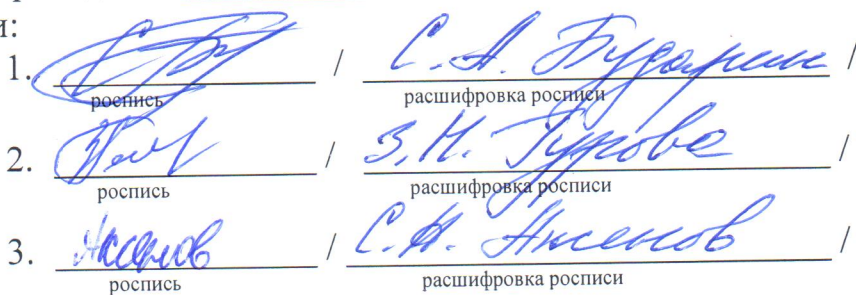 и:
1. / С. А. Бударин /
роспись расшифровка росписи
2. / З. Н. Гурова /
роспись расшифровка росписи
3. Аксенов / С. Н. Аксенов /
роспись расшифровка росписи